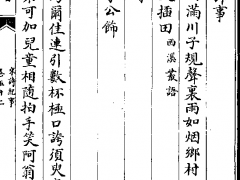 事
滿川子規聲裏雨如烟鄉村
插田西溪叢語
公飾
爾佳連引數杯極口誇須臾
可加兒童相隨拍手笑阿翁
宋詩紀事